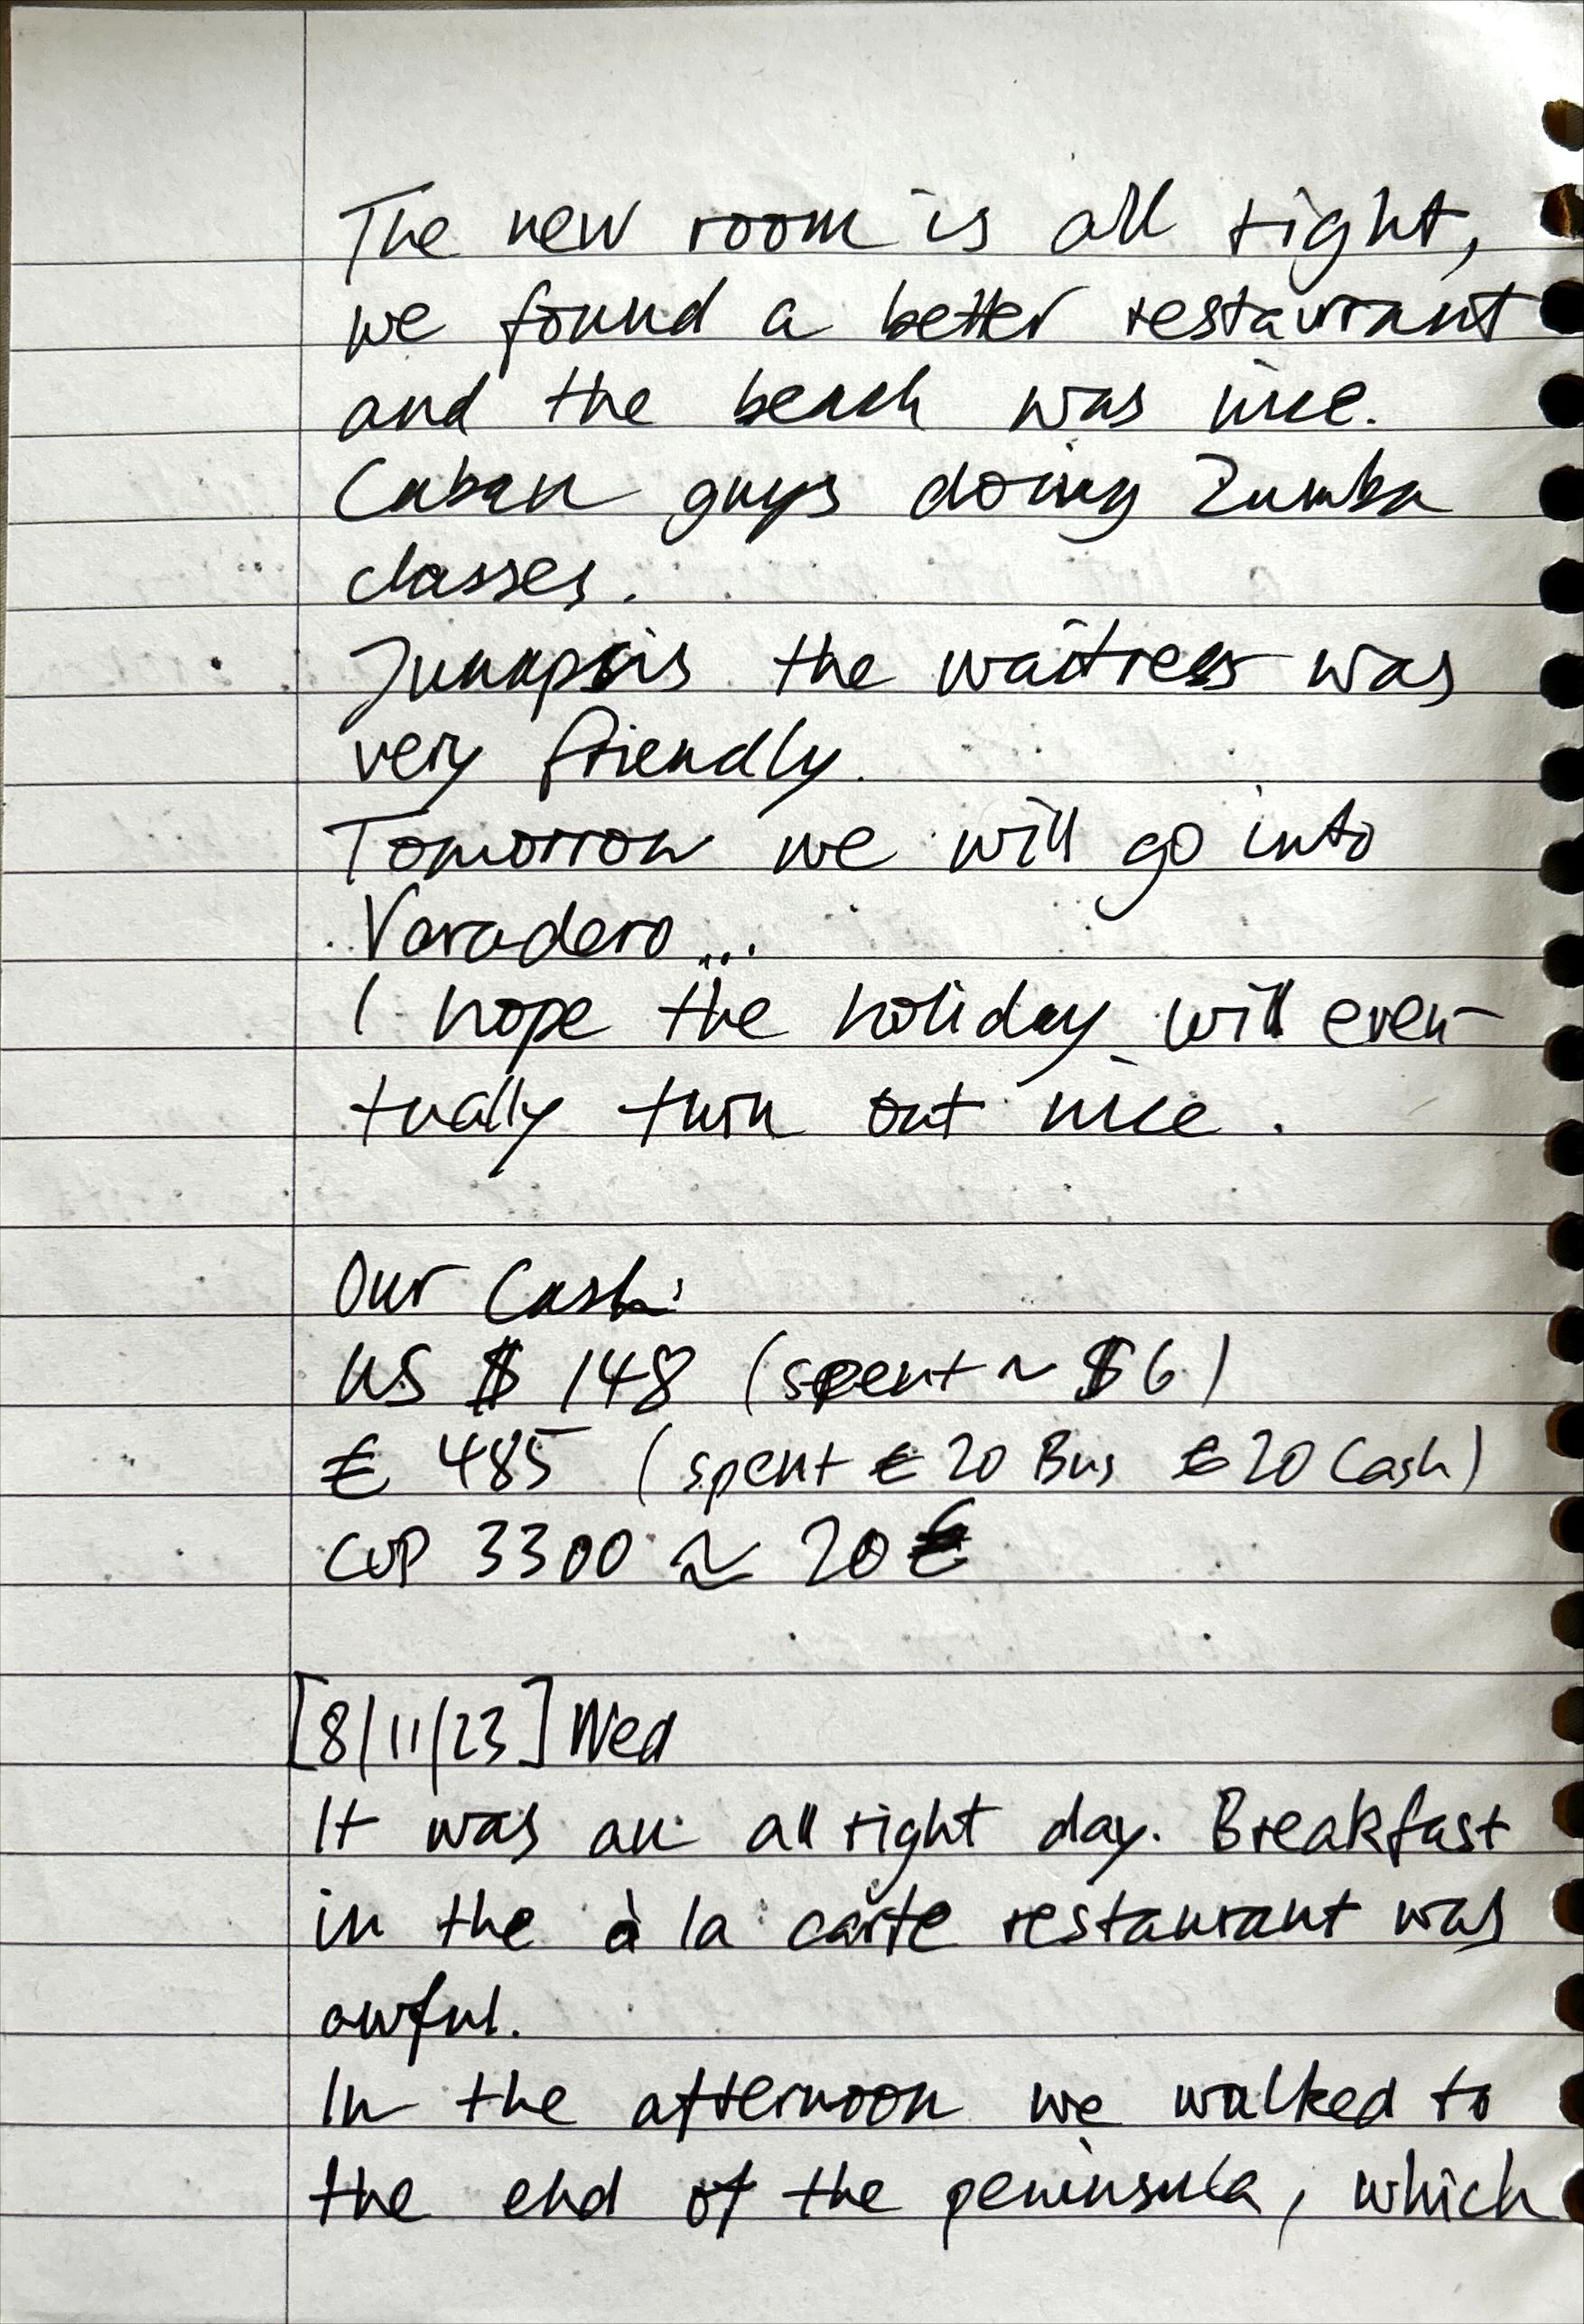 The new room is all right,
we found a better restaurant
and the beach was nice.
Cuban guys doing Zumba
classes.
the waitress was
very friendly.
Tomorrow we will go into
Varadero...
I hope the holiday will even-
tually turn out nice.
Our Cash:
US $ 148 (spent ~ $6)
€ 485 (spent € 20 Bus € 20 Cash)
CUP 3300 ≈ 20 €
[8/11/23] Wed
It was an all right day. Breakfast
in the à la carte restaurant was
awful.
In the afternoon we walked to
the end of the peninsula, which